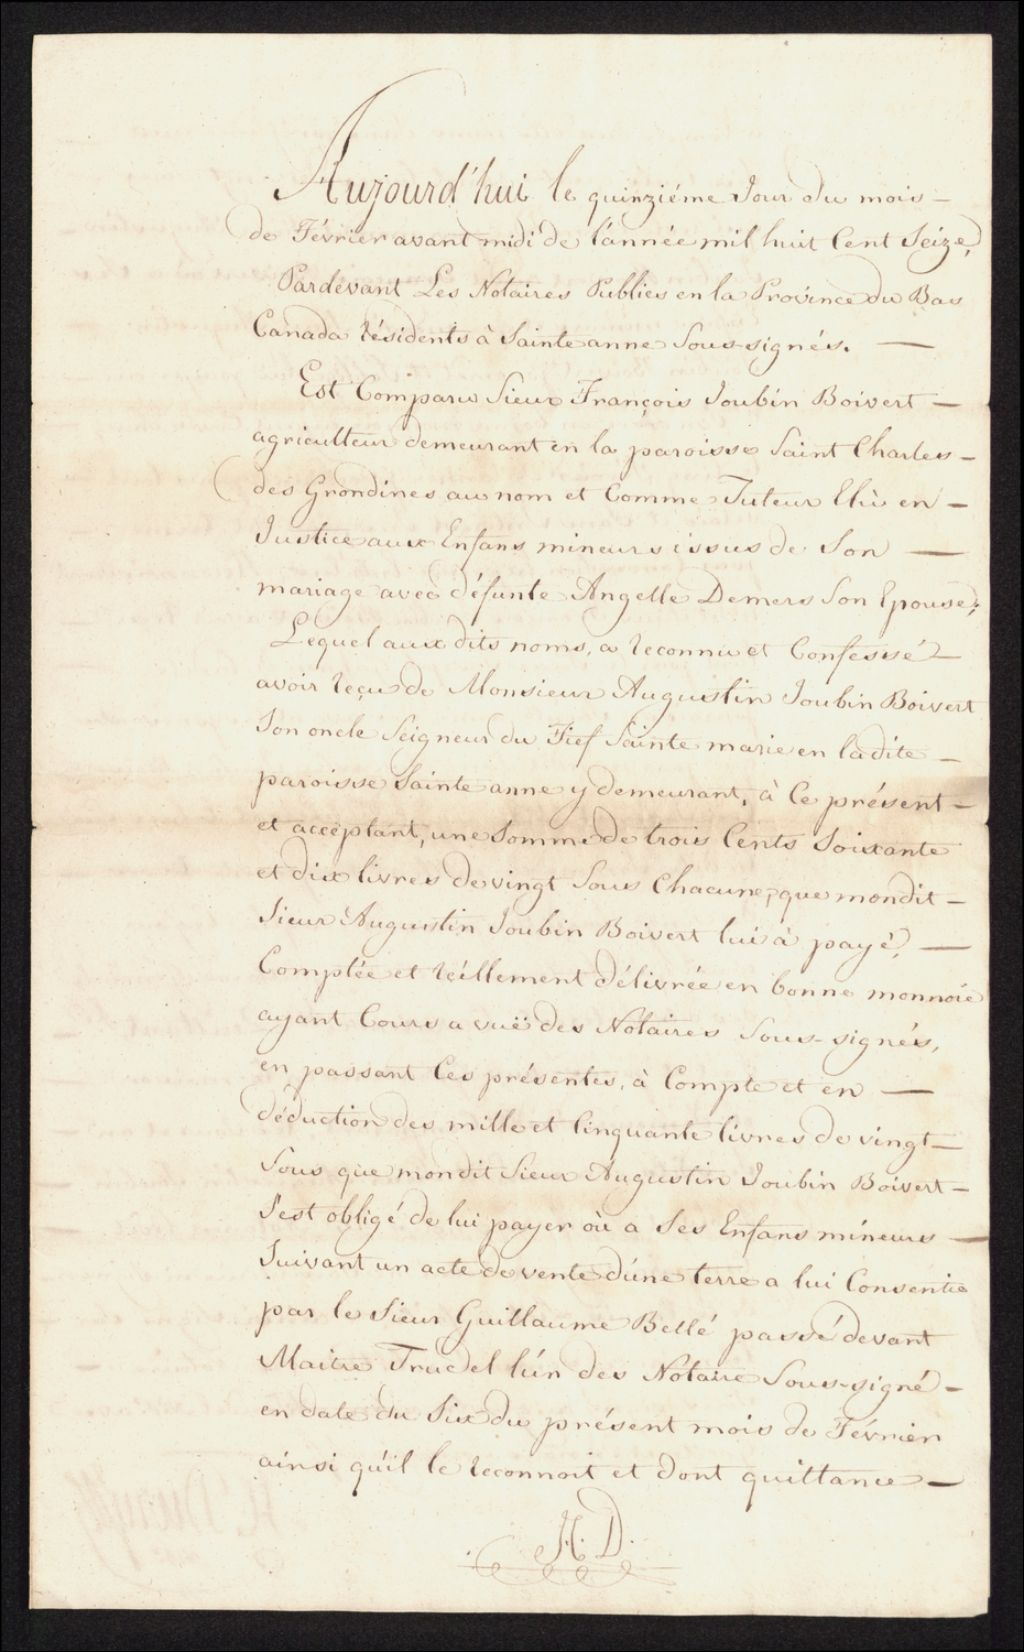 Aujourd'hui le quinziéme Jour du mois —
de Février avant midi de l'année mil huit Cent Seize,
Pardevant Les Notaires Publics en la Province du Bas
Canada résidents à Sainte anne Sous-signés. —
Est Comparu Sieur François Joubin Boivert —
agriculteur demeurant en la paroisse Saint Charles —
des Grondines au nom et Comme Tuteur Elû en —
Justice aux Enfans mineurs issus de Son —
mariage avec défunte Angelle Demers Son Epouse;
Lequel aux dits noms, a reconnu et Confessé —
avoir reçu de Monsieur Augustin Joubin Boivert
Son oncle Seigneur du Fief Sainte marie en ladite —
paroisse Sainte anne y demeurant, à Ce présent —
et acceptant, une Somme de trois Cents Soixante
et dix livres de vingt Sous Chacune, que mondit —
Sieur Augustin Joubin Boivert lui à payé, —
Comptée et réellement délivrée en bonne monnoie
ayant Cours a vuë des Notaires Sous-signés,
en passant Ces présentes, à Compte et en —
déduction des mille et Cinquante livres de vingt —
Sous que mondit Sieur Augustin Joubin Boivert —
S'est obligé de lui payer où a Ses Enfans mineurs —
Suivant un acte de vente d'úne terre a lui Consentie
par le Sieur Guillaume Bellé passé devant
Maitre Trudel l'ún des Notaire Sous-signé —
en date du Six du présent mois de Février
ainsi qu'il le reconnoit et dont quittance —
A. D.